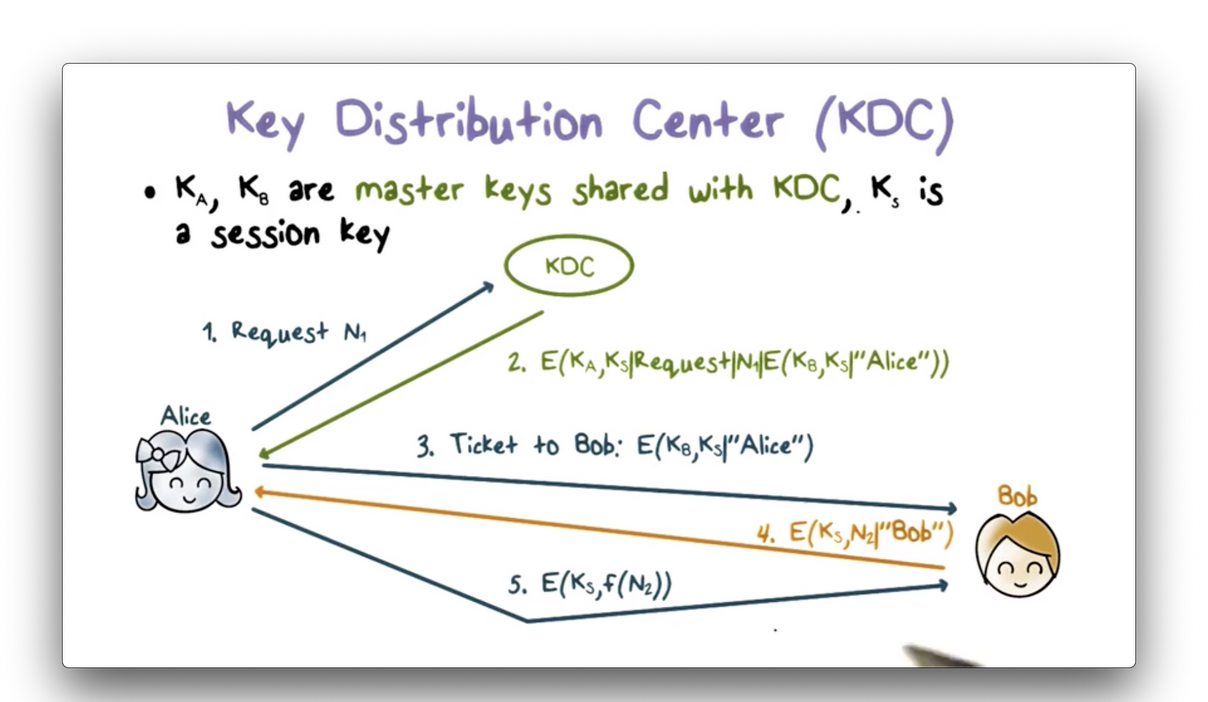 Key Distribution Center (KDC)
• K_A, K_B are master keys shared with KDC, K_s is
a session key
KDC
1. Request N₁
2. E(K_A,K_S|Request|N₁|E(K_B,K_S|"Alice"))
Alice
3. Ticket to Bob: E(K_B,K_S|"Alice")
Bob
4. E(K_S,N₂|"Bob")
5. E(K_S,f(N₂))